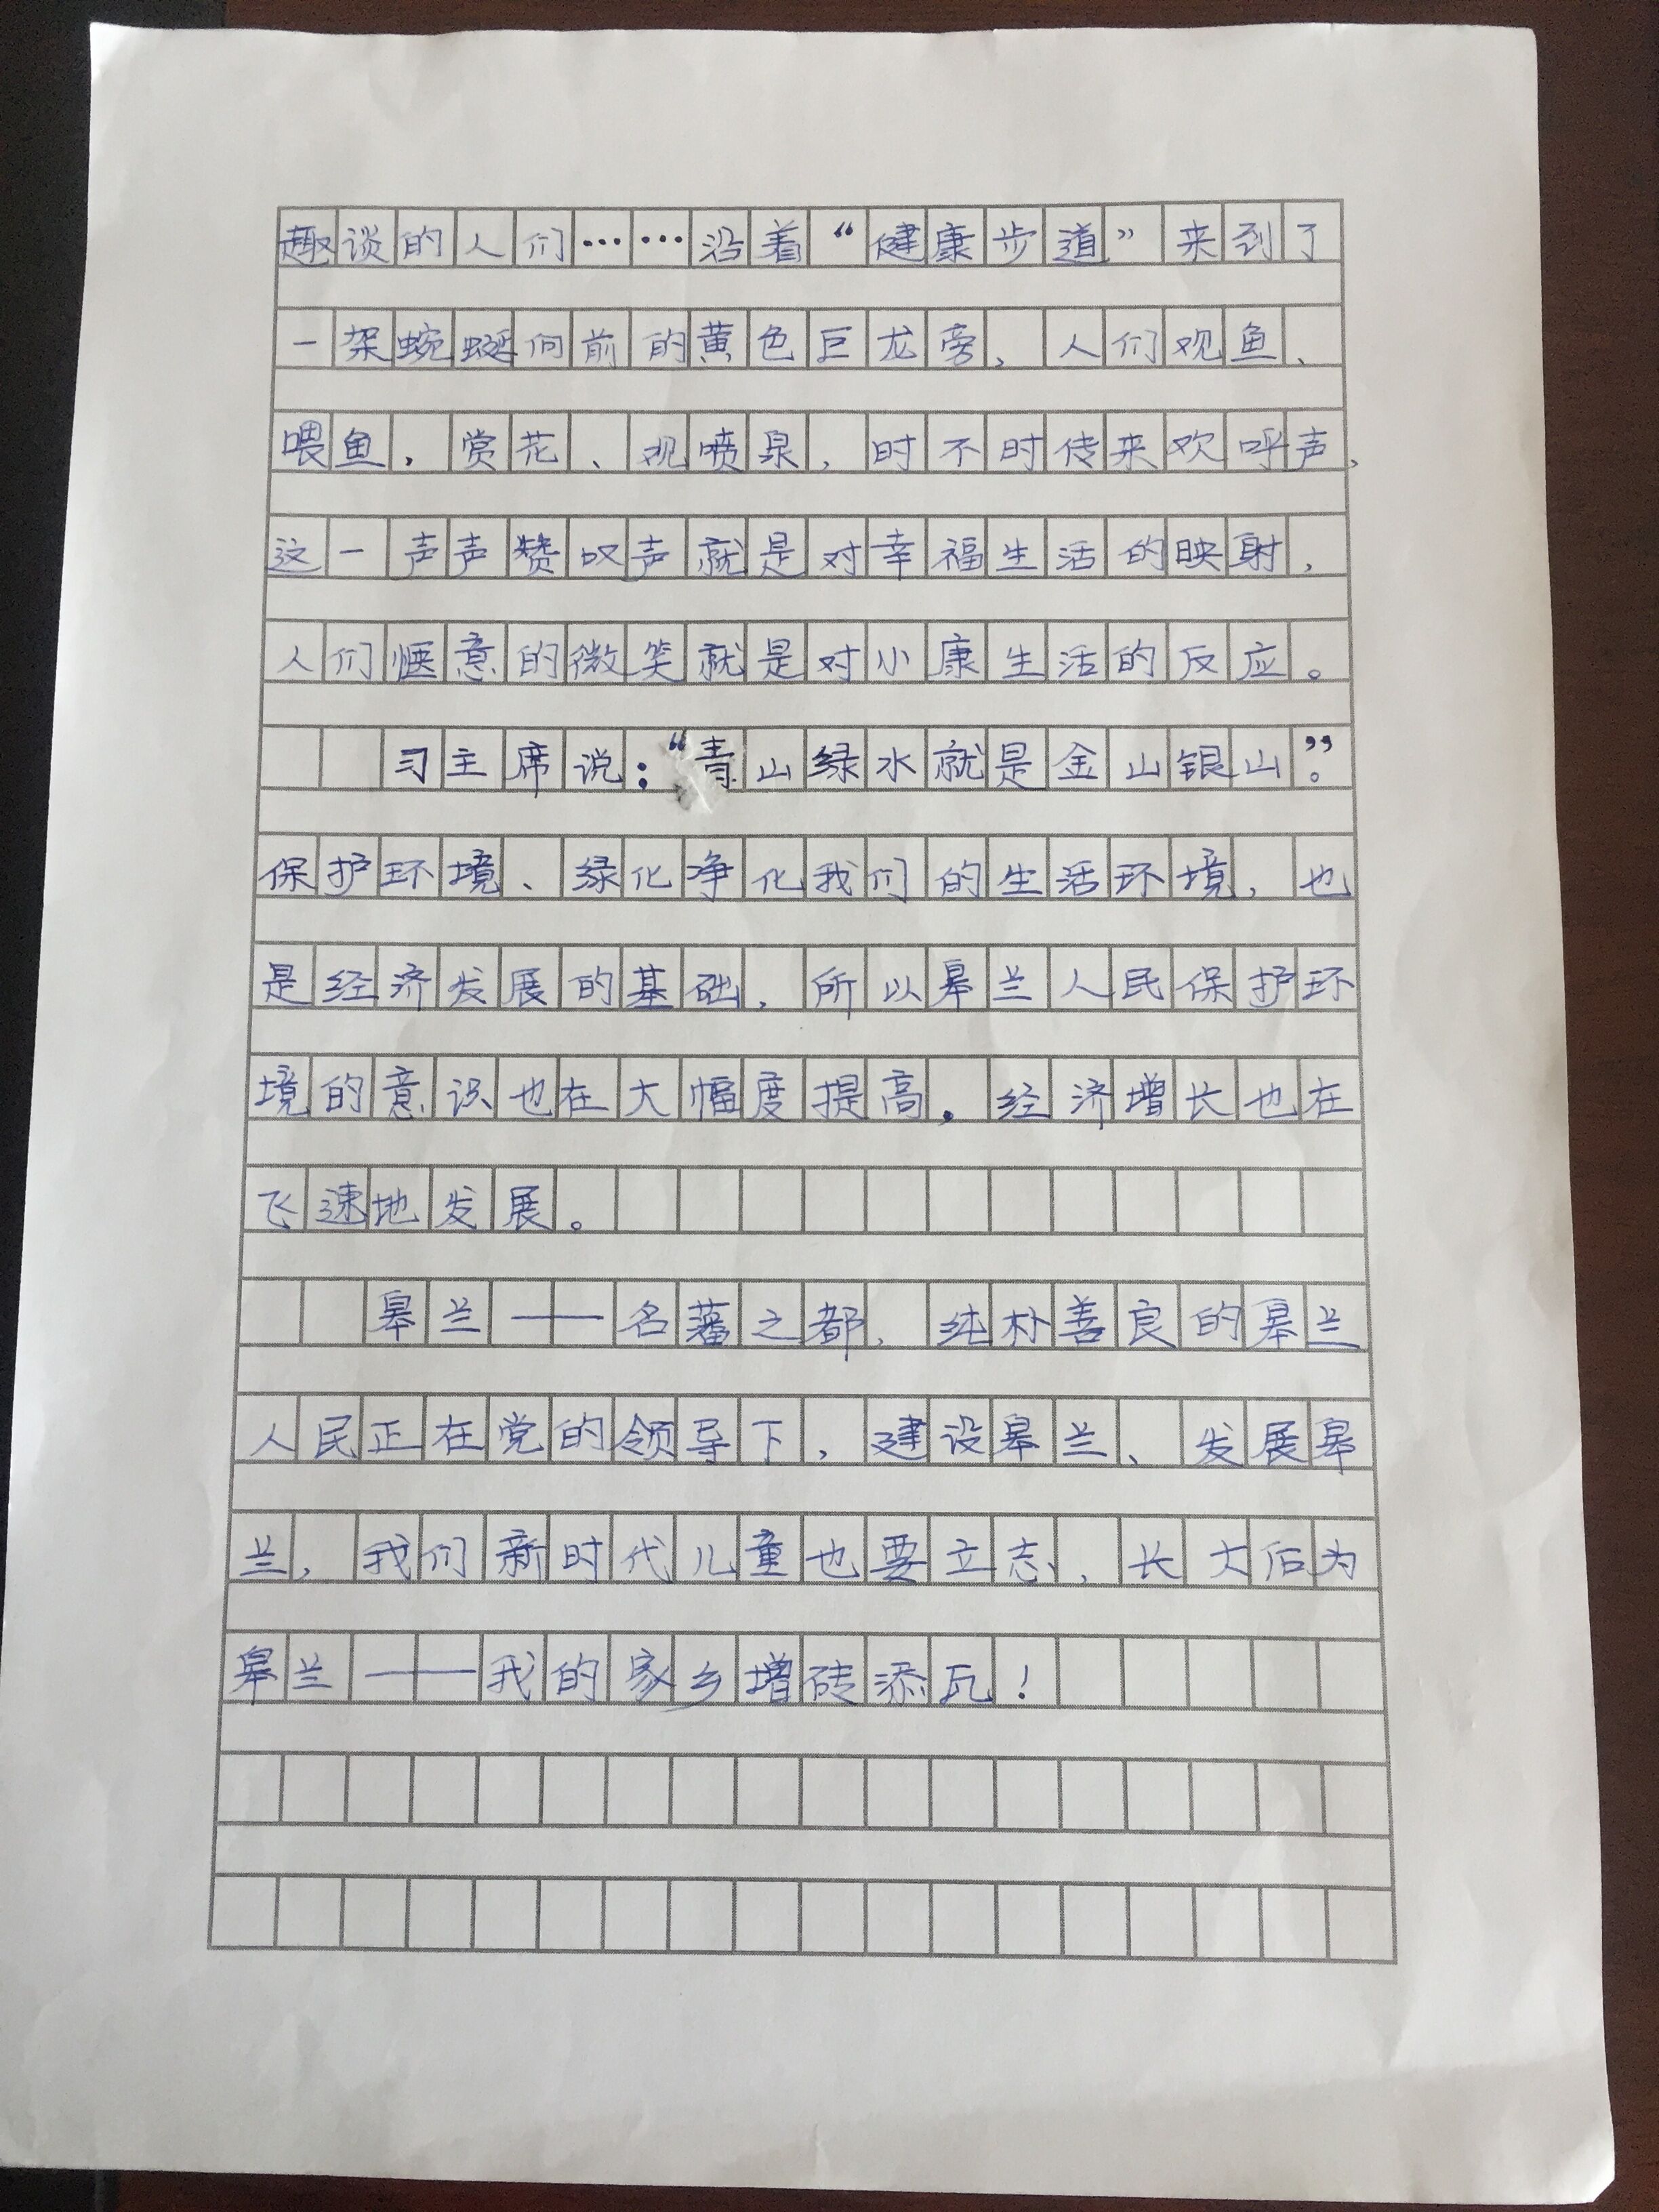 趣谈的人们……沿着“健康步道”来到了
一架蜿蜒向前的黄色巨龙旁，人们观鱼、
喂鱼，赏花、观喷泉，时不时传来欢呼声，
这一声声赞叹声就是对幸福生活的映射，
人们惬意的微笑就是对小康生活的反应。
习主席说：“青山绿水就是金山银山”。
保护环境、绿化净化我们的生活环境，也
是经济发展的基础，所以皋兰人民保护环
境的意识也在大幅度提高，经济增长也在
飞速地发展。
皋兰——名藩之都，纯朴善良的皋兰
人民正在党的领导下，建设皋兰、发展皋
兰，我们新时代儿童也要立志，长大后为
皋兰——我的家乡增砖添瓦！